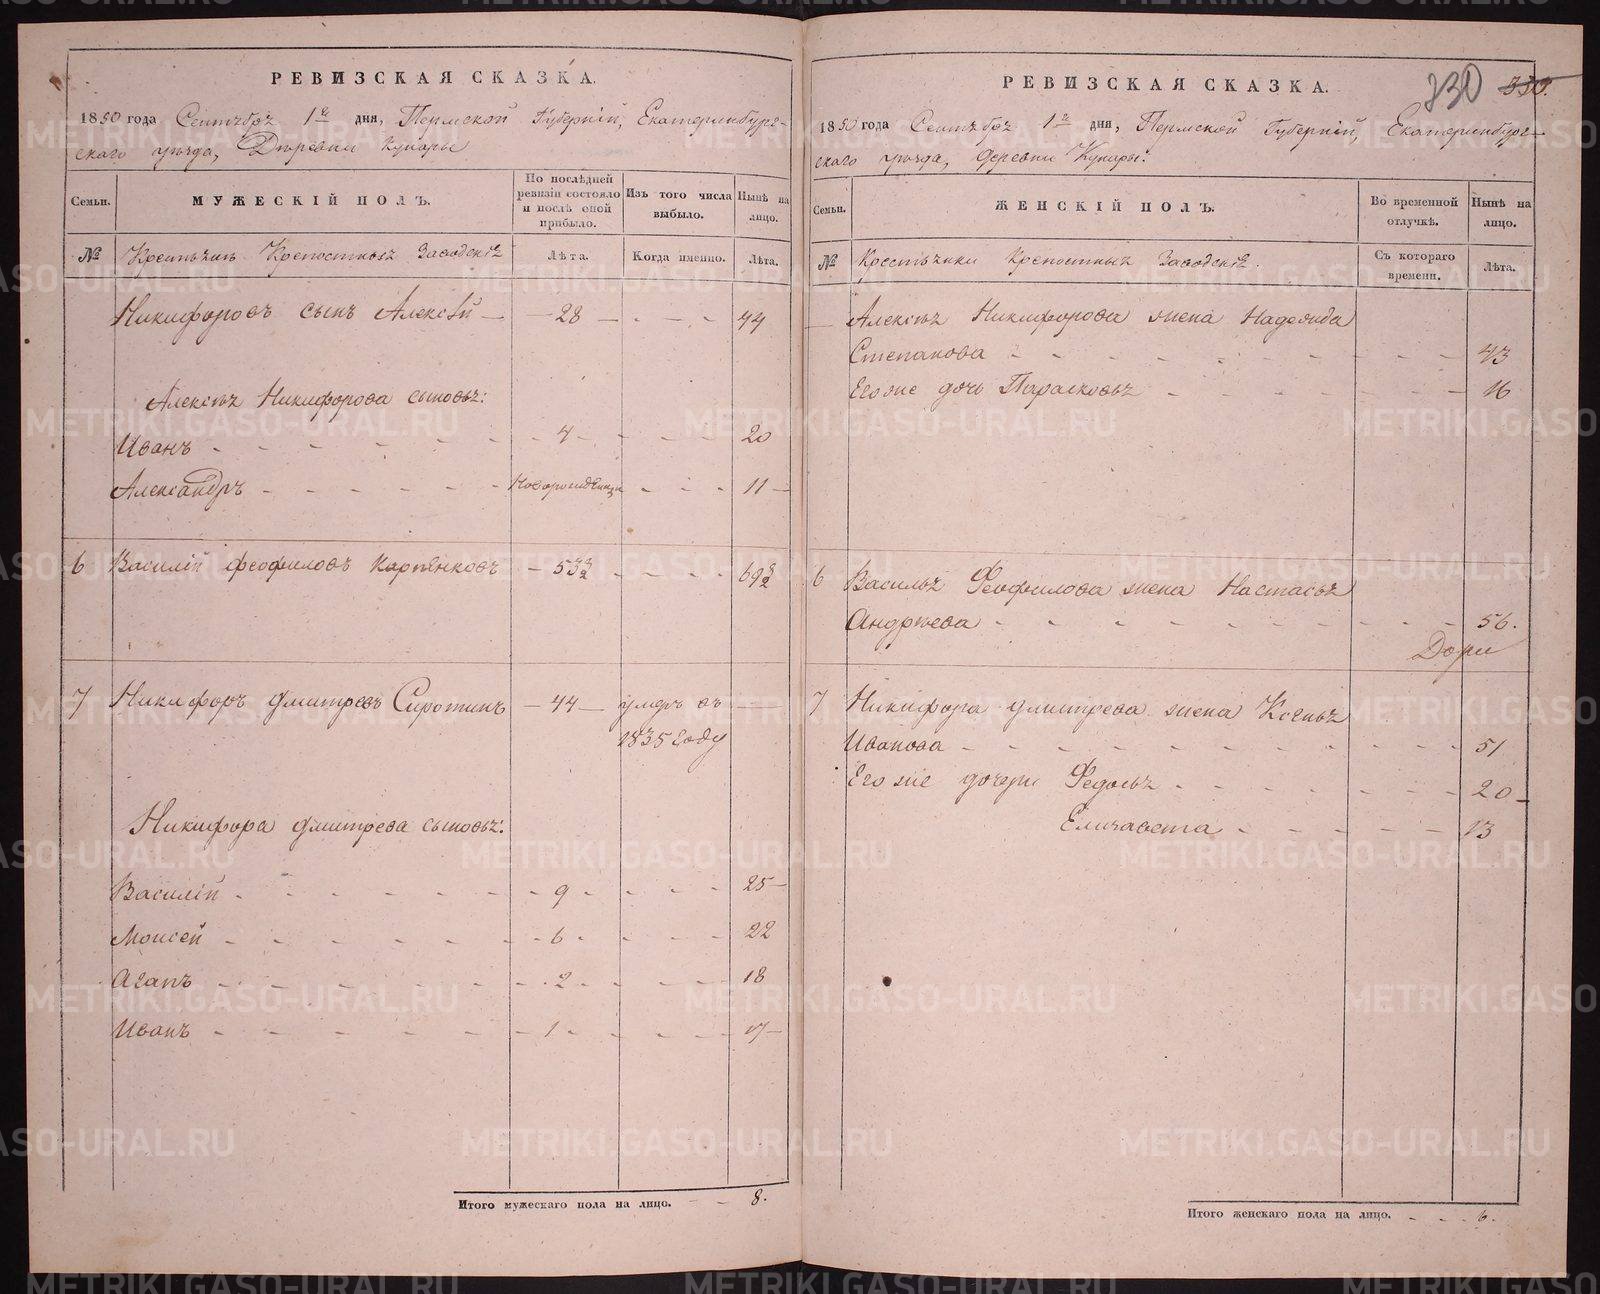 РЕВИЗСКАЯ СКАЗКА.
1850 года Сентября 1го дня, Пермской Губернiи, Екатеринбург-
скаго уѣзда, Деревни Купары
Семьи.
МУЖЕСКIЙ ПОЛЪ.
По послѣдней ревизiи состояло и послѣ оной прибыло.
Изъ того числа выбыло.
Нынѣ на лицо.
№
Крестьянъ Крепостныхъ Заводскихъ
Лѣта.
Когда именно.
Лѣта.
Никифоровъ сынъ Алексѣй — 28 — 44
Алексѣя Никифорова сыновья:
Иванъ 4 20
Александръ Новорожденный 11
6 Василiй Феофиловъ 53½ 69½
7 Никифоръ Дмитревъ Сиротинъ — 44 — умеръ въ
1835 году
Никифора Дмитрева сыновья:
Василiй 9 25
Моисей 6 22
Агапъ 2 18
Иванъ 1 17
Итого мужескаго пола на лицо. 8.
РЕВИЗСКАЯ СКАЗКА. 330
1850 года Сентября 1го дня, Пермской Губернiи, Екатеринбург-
скаго уѣзда, деревни Купары.
Семьи.
ЖЕНСКIЙ ПОЛЪ.
Во временной отлучкѣ.
Нынѣ на лицо.
№
Крестьянки Крепостныхъ Заводскихъ.
Съ котораго времени.
Лѣта.
Алексѣя Никифорова жена Надежда
Степанова 43
Его же дочь Парасковья 16
6 Василья Феофилова жена Настасья
Андреева 56.
7 Никифора Дмитрева жена Ксенья
Иванова 51
Его же дочери Федосья 20
Елизавета 13
Итого женскаго пола на лицо. 6.
METRIKI.GASO-URAL.RU